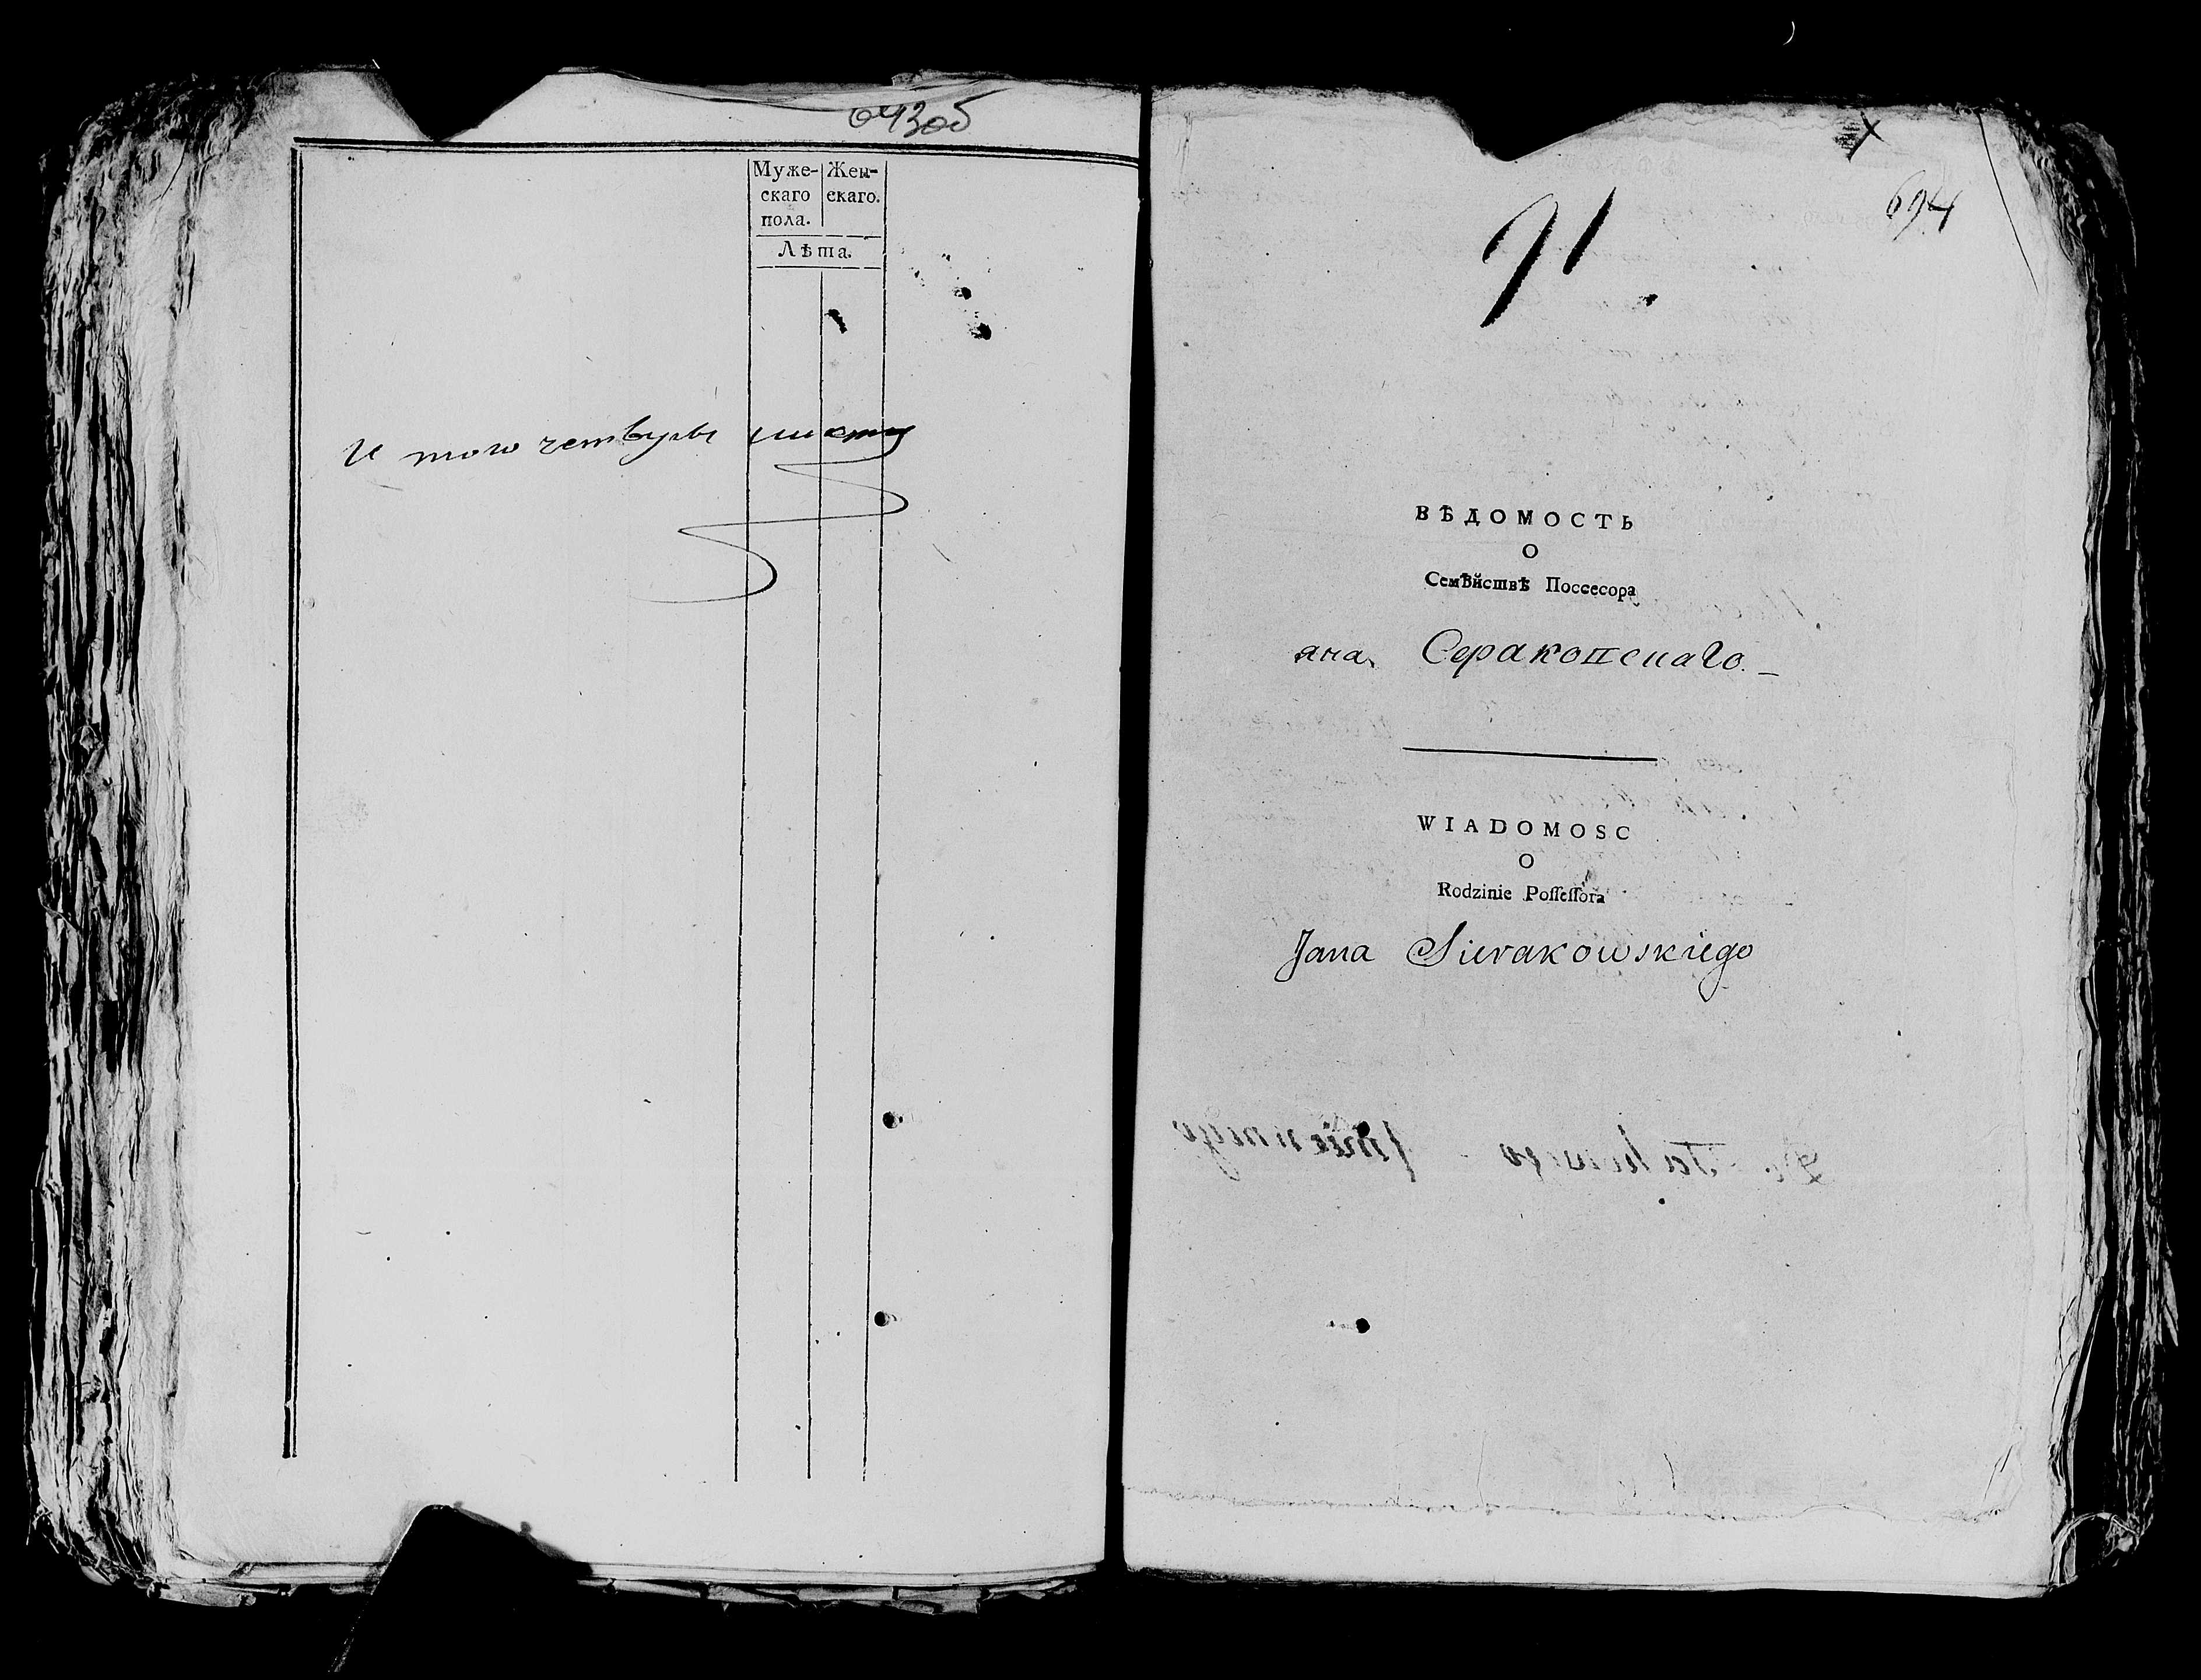 Муже- Жен-
скаго скаго.
пола.
Лѣта.
И того четвуры листы
91
694
ВѢДОМОСТЬ
О
Семѣйствѣ Поссесора
яна Сераковскаго.
WIADOMOSC
O
Rodzinie Poſſeſſora
Jana Sierakowskiego